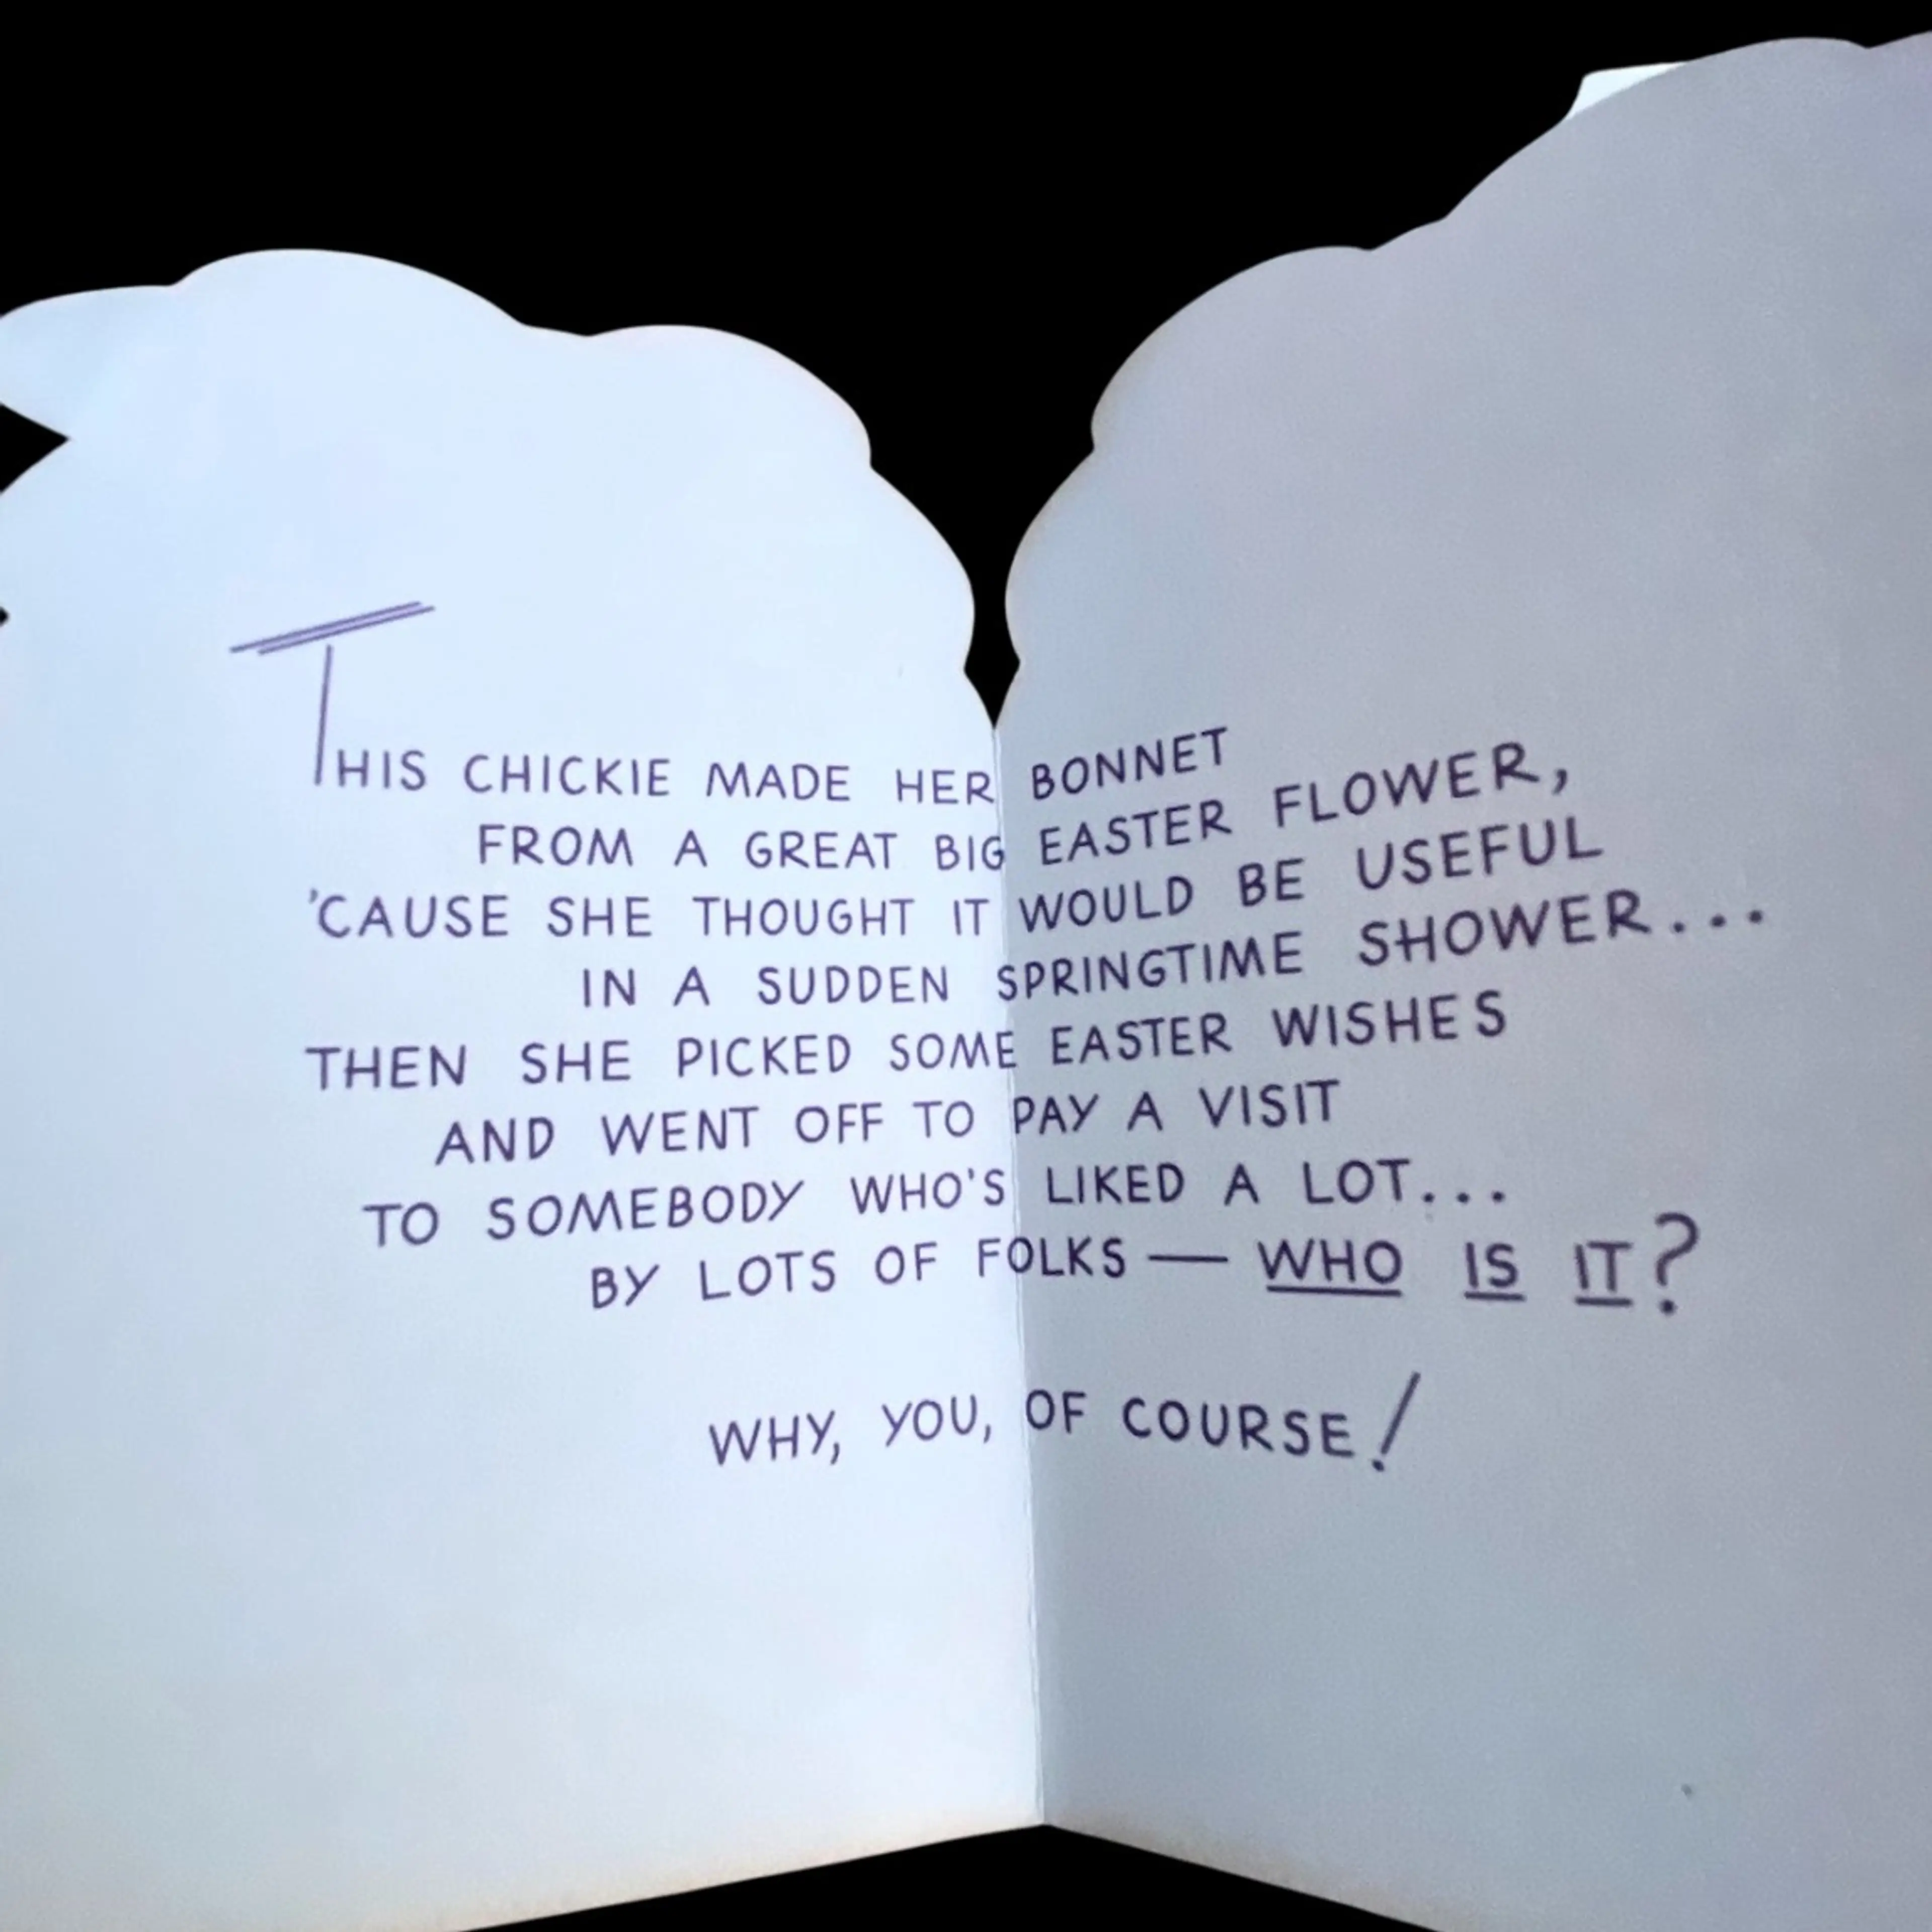 THIS CHICKIE MADE HER BONNET
FROM A GREAT BIG EASTER FLOWER,
'CAUSE SHE THOUGHT IT WOULD BE USEFUL
IN A SUDDEN SPRINGTIME SHOWER...
THEN SHE PICKED SOME EASTER WISHES
AND WENT OFF TO PAY A VISIT
TO SOMEBODY WHO'S LIKED A LOT...
BY LOTS OF FOLKS — WHO IS IT?
WHY, YOU, OF COURSE!